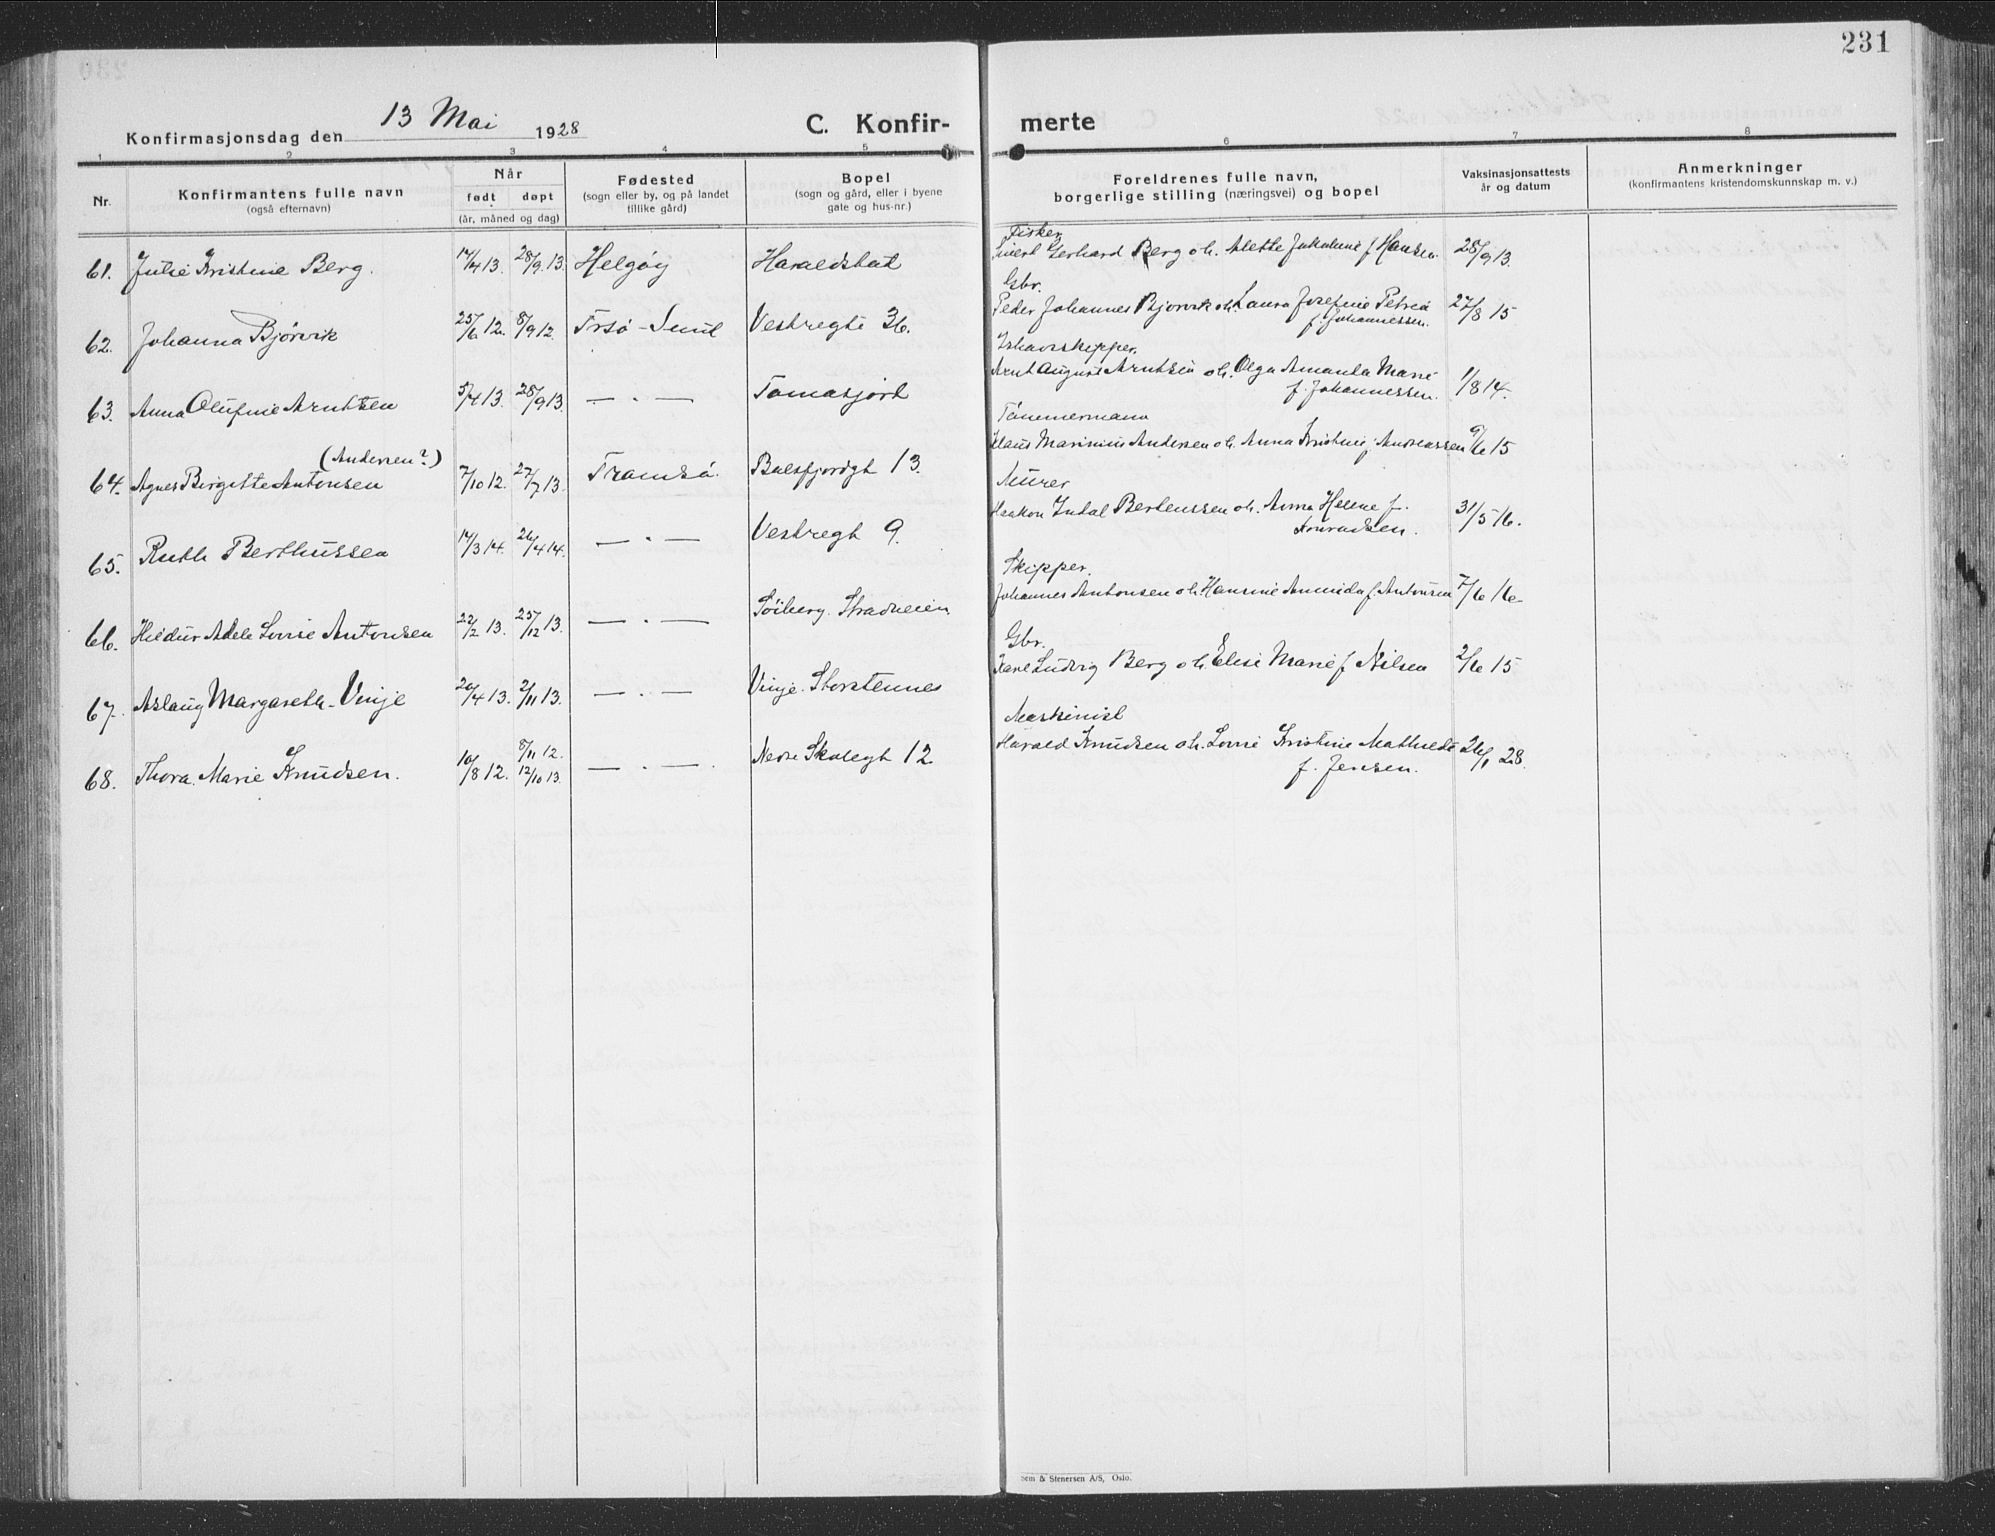 231
Konfirmasjonsdag den 13 Mai 1928
C. Konfir- merte
1 2 3 4 5 6 7 8
Nr.
Konfirmantens fulle navn
(også efternavn)
Når
født døpt
(år, måned og dag)
Fødested
(sogn eller by, og på landet
tillike gård)
Bopel
(sogn og gård, eller i byene
gate og hus-nr.)
Foreldrenes fulle navn,
borgerlige stilling (næringsvei) og bopel
Vaksinasjonsattests
år og datum
Anmerkninger
(konfirmantens kristendomskunnskap m. v.)
Fisker
61. Julie Kristine Berg. 17/4 13. 28/9 13. Helgøy Haraldstat Sivert Gerhard Berg o h. Alette Jakobine f Hansen. 28/9 13.
Gbr.
62. Johanna Bjørvik 25/6 12. 8/9 12. Trsø-Sund Vestregte 36. Peder Johannes Bjørvik o h. Laura Josefine Petrea 27/8 15
f. Johannessen.
Ishavsskipper.
63. Anna Olufine Arntsen 5/4 13. 28/9 13. — " — Tomasjord Arnt August Arntsen o h. Olga Amanda Marie 1/8 14.
f. Johannessen.
Tønnermann
(Andersen?)
64. Agnes Birgitte Antonsen 7/10 12. 27/7 13. Tromsø. Balsfjordgt 13. Klaus Marinius Andersen o h. Anna Kristine f. Andreassen 9/6 15
Murer
65. Ruth Berthussen 14/3 14. 26/4 14. — " — Vestregt 9. Haakon Indal Bertenssen o h. Anna Helene f. 31/5 16.
Konradsen.
Skipper.
66. Hildur Adele Lovise Antonsen 22/2 13. 25/12 13. — " — Søiberg. Strandveien Johannes Antonsen o h. Hansine Annida f. Antonsen 7/6 16
Gbr.
67. Aslaug Margareth Vinje 20/4 13. 2/11 13. — " — Vinje. Storstennes Karl Ludvig Berg o h. Elise Marie f Nilsen 2/6 15
Maskinist
68. Thora Marie Knudsen. 10/8 12. 8/11 12. 12/10 13. — " — Nedre Skolegt 12 Harald Knudsen o h. Lovise Kristine Mathilde 26/1 28.
f. Jensen.
Sem & Stenersen A/S, Oslo.